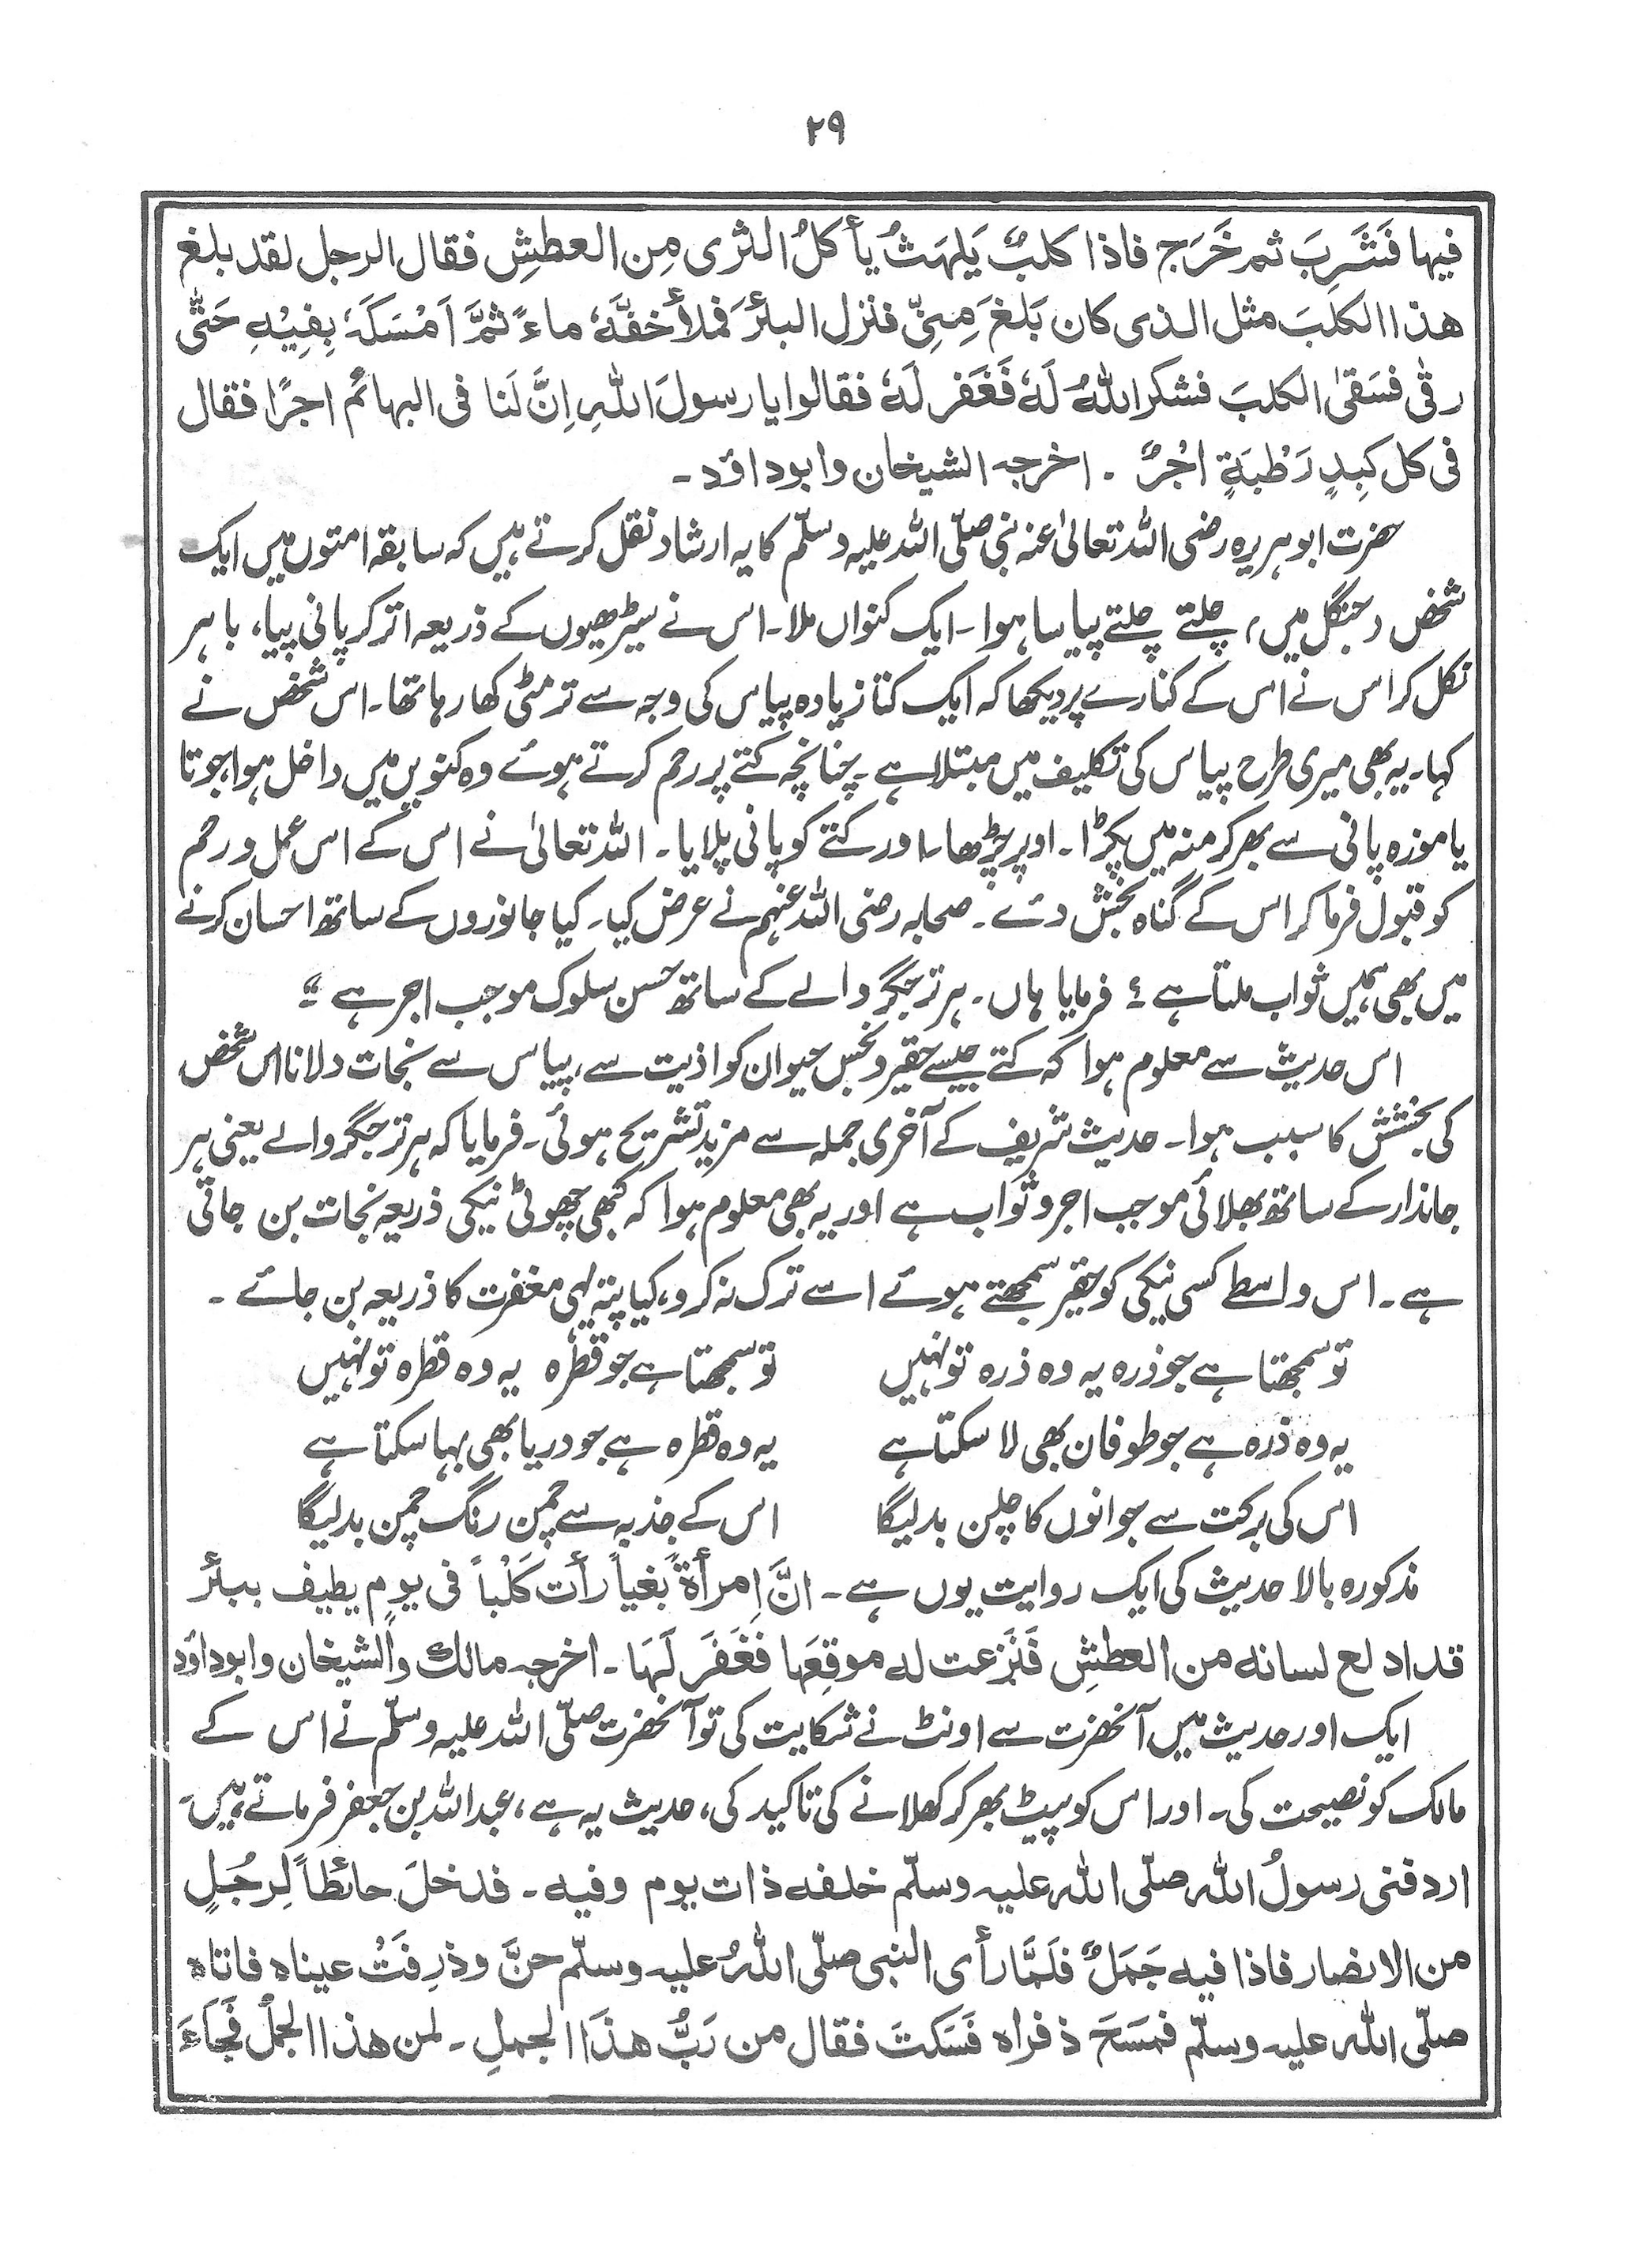 ۲۹
فیہا فَشَرِبَ ثم خَرَج فاذا کلبٌ یَلہَثُ یأکلُ الثری مِن العطشِ فقال الرجل لقد بلغ
ھذا الکلبَ مثل الذی کان بَلغَ مِنِّی فنزل البئرَ فملأ خفَّہٗ ماءً ثمَّ اَمْسَکَہٗ بِفِیْہِ حَتّٰی
رقٰی فسَقیٰ الکلبَ فشکر اللہُ لَہٗ فَغَفر لَہٗ فقالوا یا رسولَ اللہِ اِنَّ لَنا فی البہائم اجرًا فقال
فی کل کبِدٍ رَطْبَۃٍ اجْرٌ ۔ اخرجہ الشیخان وابوداؤد ۔
حضرت ابوہریرہ رضی اللہ تعالیٰ عنہ نبی صلّی اللہ علیہ وسلّم کا یہ ارشاد نقل کرتے ہیں کہ سابقہ امتوں میں ایک
شخص (جنگل میں) چلتے چلتے پیاسا ہوا ۔ ایک کنواں ملا ۔ اس نے سیڑھیوں کے ذریعہ اتر کر پانی پیا، باہر
نکل کر اس نے اس کے کنارے پر دیکھا کہ ایک کتا زیادہ پیاس کی وجہ سے تر مٹی کھا رہا تھا ۔ اس شخص نے
کہا ۔ یہ بھی میری طرح پیاس کی تکلیف میں مبتلا ہے ۔ چنانچہ کتے پر رحم کرتے ہوئے وہ کنویں میں داخل ہوا، جوتا
یا موزہ پانی سے بھر کر منہ میں پکڑا ۔ اوپر چڑھا ۔ اور کتے کو پانی پلایا ۔ اللہ تعالیٰ نے اس کے اس عمل و رحم
کو قبول فرما کر اس کے گناہ بخش دئے ۔ صحابہ رضی اللہ عنہم نے عرض کیا ۔ کیا جانوروں کے ساتھ احسان کرنے
میں بھی ہمیں ثواب ملتا ہے ؟ فرمایا ہاں ۔ ہر تر جگر والے کے ساتھ حسن سلوک موجب اجر ہے ۔"
اس حدیث سے معلوم ہوا کہ کتے جیسے حقیر و نجس حیوان کو اذیت سے، پیاس سے نجات دلانا اس شخص
کی بخشش کا سبب ہوا ۔ حدیث شریف کے آخری جملہ سے مزید تشریح ہوئی ۔ فرمایا کہ ہر تر جگر والے یعنی ہر
جاندار کے ساتھ بھلائی موجب اجر و ثواب ہے اور یہ بھی معلوم ہوا کہ کبھی چھوٹی نیکی ذریعہ نجات بن جاتی
ہے ۔ اس واسطے کسی نیکی کو حقیر سمجھتے ہوئے اسے ترک نہ کرو، کیا پتہ یہی مغفرت کا ذریعہ بن جائے ۔
تو سمجھتا ہے جو ذرہ یہ وہ ذرہ تو نہیں تو سمجھتا ہے جو قطرہ یہ وہ قطرہ تو نہیں
یہ وہ ذرہ ہے جو طوفان بھی لا سکتا ہے یہ وہ قطرہ ہے جو دریا بھی بہا سکتا ہے
اس کی برکت سے جوانوں کا چلن بدلیگا اس کے جذبہ سے چمن رنگ چمن بدلیگا
مذکورہ بالا حدیث کی ایک روایت یوں ہے ۔ انَّ اِمرأۃً بغیاً رأت کَلْباً فی یومٍ یطیف ببئر
قد ادلع لسانہ من العطشِ فَنَزعت لہ موقِعَہا فغَفَرَ لَہَا ۔ اخرجہ مالک والشیخان وابوداؤد
ایک اور حدیث میں آنحضرت سے اونٹ نے شکایت کی تو آنحضرت صلّی اللہ علیہ وسلّم نے اس کے
مالک کو نصیحت کی ۔ اور اس کو پیٹ بھر کر کھلانے کی تاکید کی، حدیث یہ ہے، عبداللہ بن جعفر فرماتے ہیں ۔
اردفنی رسولُ اللہ صلّی اللہ علیہ وسلّم خلفہ ذات یوم وفیہ ۔ فدخلَ حائطاً لِرجُلٍ
من الانصار فاذا فیہ جَمَلٌ فلَمَّا رأی النبی صلّی اللہُ علیہ وسلّم حنَّ وذرِفَتْ عیناہ فاتاہ
صلّی اللہ علیہ وسلّم فمسَحَ ذفراہ فَسَکتَ فقال من رَبُّ ھذَا الجملِ ۔ لمن ھذا الجملُ فَجَاءَ